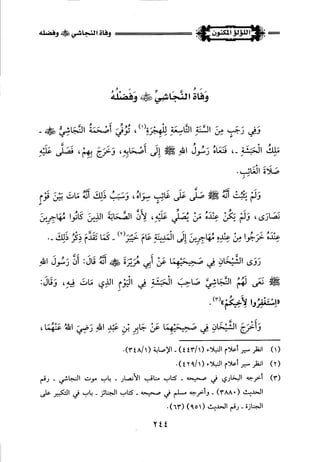 اللؤلؤ المكنون
وفاة النجاشي ﷺ وفضله
وَفَاةُ النَّجَاشِيِّ ﷺ وَفَضْلُهُ
وَفِي رَجَبٍ مِنَ السَّنَةِ التَّاسِعَةِ لِلْهِجْرَةِ(١)، تُوُفِّيَ أَصْحَمَةُ النَّجَاشِيُّ ﷺ -
مَلِكُ الْحَبَشَةِ -، فَنَعَاهُ رَسُولُ اللهِ ﷺ إِلَى أَصْحَابِهِ، وَخَرَجَ بِهِمْ، فَصَلَّى عَلَيْهِ
صَلَاةَ الْغَائِبِ.
وَلَمْ يَثْبُتْ أَنَّهُ ﷺ صَلَّى عَلَى غَائِبٍ سِوَاهُ، وَسَبَبُ ذَلِكَ أَنَّهُ مَاتَ بَيْنَ قَوْمٍ
نَصَارَى، وَلَمْ يَكُنْ عِنْدَهُ مَنْ يُصَلِّي عَلَيْهِ، لِأَنَّ الصَّحَابَةَ الذِينَ كَانُوا مُهَاجِرِينَ
عِنْدَهُ خَرَجُوا مِنْ عِنْدِهِ مُهَاجِرِينَ إِلَى الْمَدِينَةِ عَامَ خَيْبَرَ(٢) - كَمَا تَقَدَّمَ ذِكْرُ ذَلِكَ -.
رَوَى الشَّيْخَانِ فِي صَحِيحَيْهِمَا عَنْ أَبِي هُرَيْرَةَ ﷺ أَنَّهُ قَالَ: أَنَّ رَسُولَ اللهِ
ﷺ نَعَى لَهُمُ النَّجَاشِيَّ صَاحِبَ الْحَبَشَةِ فِي الْيَوْمِ الذِي مَاتَ فِيهِ، وَقَالَ:
«اسْتَغْفِرُوا لِأَخِيكُمْ»(٣).
وَأَخْرَجَ الشَّيْخَانِ فِي صَحِيحَيْهِمَا عَنْ جَابِرِ بْنِ عَبْدِ اللهِ رَضِيَ اللهُ عَنْهُمَا،
(١) انظر سير أعلام النبلاء (٤٤٣/١) - الإصابة (٣٤٨/١).
(٢) انظر سير أعلام النبلاء (٤٢٩/١).
(٣) أخرجه البخاري في صحيحه - كتاب مناقب الأنصار - باب موت النجاشي - رقم
الحديث (٣٨٨٠) - وأخرجه مسلم في صحيحه - كتاب الجنائز - باب في التكبير على
الجنازة - رقم الحديث (٩٥١) (٦٣).
٢٤٤